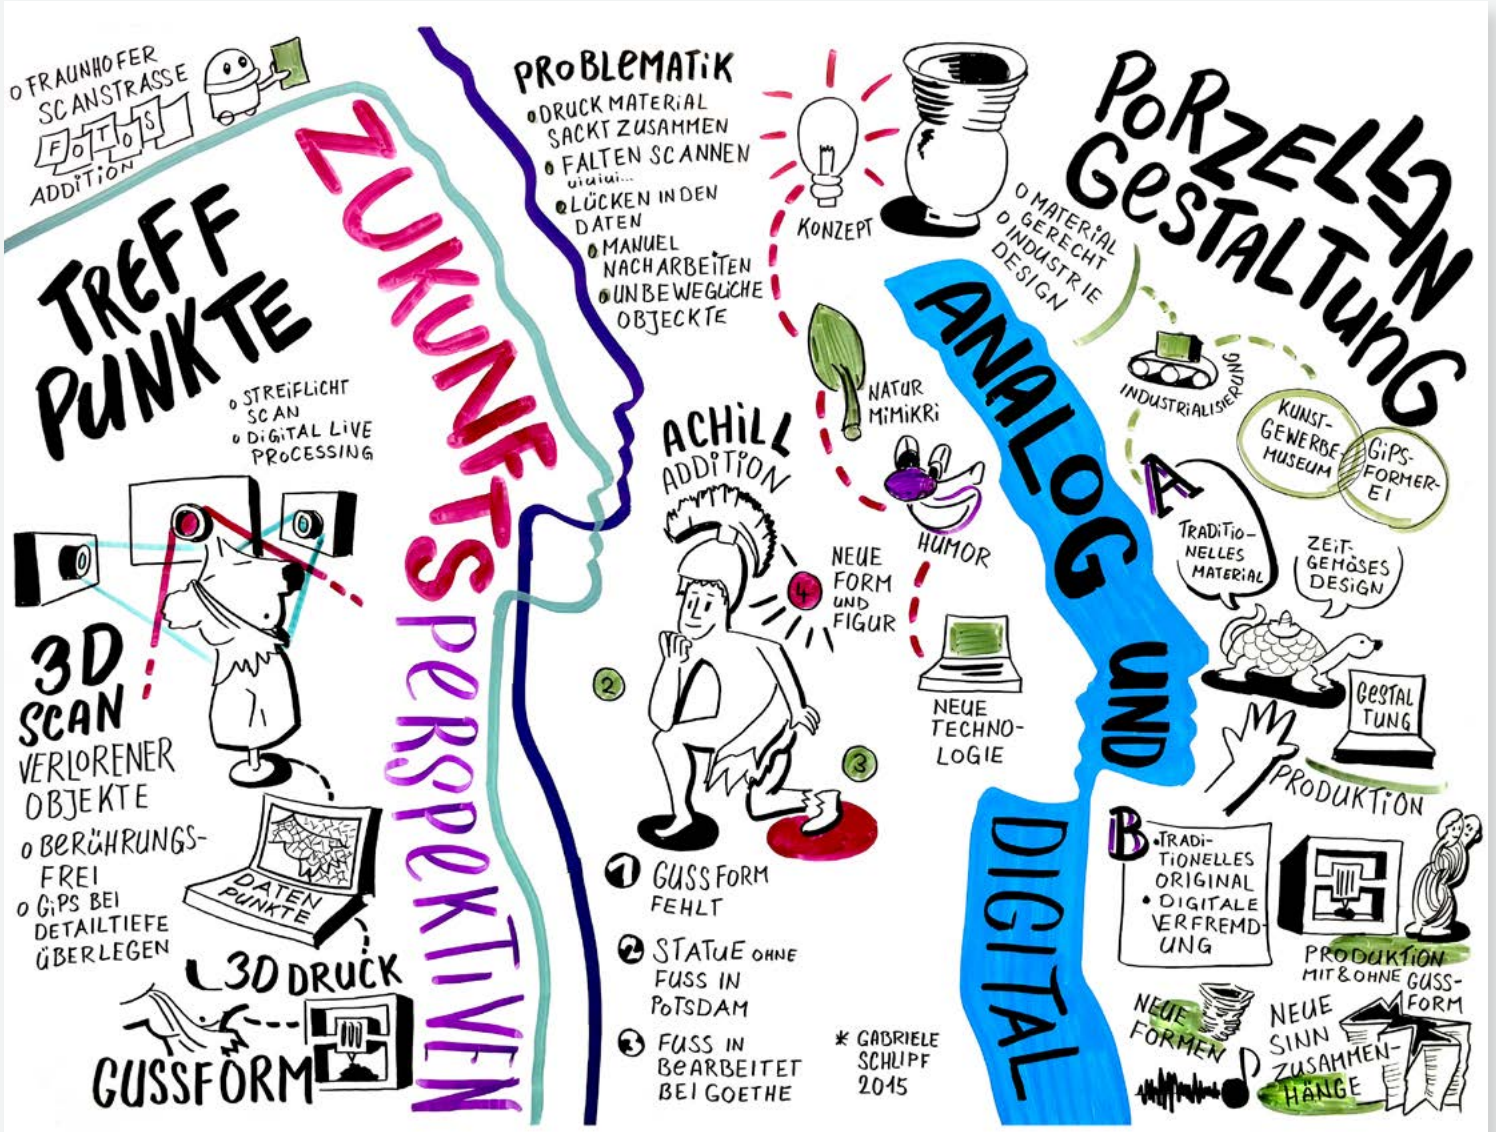 o FRAUNHOFER
SCANSTRASSE
FOTOS
ADDITION
TREFF
PUNKTE
o STREIFLICHT
SCAN
o DIGITAL LIVE
PROCESSING
3D
SCAN
VERLORENER
OBJEKTE
o BERÜHRUNGS-
FREI
o GIPS BEI
DETAILTIEFE
ÜBERLEGEN
DATEN
PUNKTE
3D DRUCK
GUSSFORM
ZUKUNFTS
PERSPEKTIVEN
PROBLEMATIK
o DRUCK MATERIAL
SACKT ZUSAMMEN
o FALTEN SCANNEN
uiuiui...
o LÜCKEN IN DEN
DATEN
o MANUEL
NACHARBEITEN
o UNBEWEGLICHE
OBJECKTE
KONZEPT
NATUR
MIMIKRI
HUMOR
NEUE
TECHNO-
LOGIE
ACHILL
ADDITION
4
NEUE
FORM
UND
FIGUR
2
3
1 GUSSFORM
FEHLT
2 STATUE OHNE
FUSS IN
POTSDAM
3 FUSS IN
BEARBEITET
BEI GOETHE
* GABRIELE
SCHLIPF
2015
ANALOG UND
DIGITAL
PORZELLAN
GESTALTUNG
o MATERIAL
GERECHT
o INDUSTRIE
DESIGN
INDUSTRIALISIERUNG
KUNST-
GEWERBE-
MUSEUM
GIPS-
FORMER-
EI
A
TRADITIO-
NELLES
MATERIAL
ZEIT-
GEMÖSES
DESIGN
GESTAL
TUNG
PRODUKTION
B
• TRADI-
TIONELLES
ORIGINAL
• DIGITALE
VERFREMD-
UNG
PRODUKTION
MIT & OHNE GUSS-
FORM
NEUE
FORMEN
NEUE
SINN
ZUSAMMEN-
HÄNGE